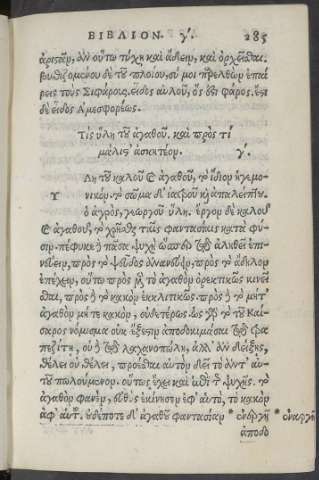 ΒΙΒΛΙΟΝ. γʹ. 285
ἀριστᾶν, ἂν οὕτω τύχῃ καὶ ᾄδειν, καὶ ὀρχεῖσθαι.
βυθιζομένου δὲ τοῦ πλοίου, σύ μοι παρελθὼν ἐπαί
ρεις τοὺς
δὲ εἶδος
Τίς ὕλη τοῦ ἀγαθοῦ. καὶ πρὸς τί
μάλιστ' ἀσκητέον. γʹ.
Υ Λη τοῦ καλοῦ καὶ ἀγαθοῦ, τὸ ἴδιον ἡγεμο
νικόν. τὸ σῶμα δ' ἰατροῦ κỳ ἀπαλείπτου.
ὁ ἀγρὸς, γεωργοῦ ὕλη. ἔργον δὲ καλοῦ
καὶ ἀγαθοῦ, τὸ χρῆσθαι ταῖς φαντασίαις κατὰ φύ
σιν. πέφυκε πᾶσα ψυχὴ ὥσπερ τῷ ἀληθεῖ ἐπι
νεύειν, πρὸς τὸ ψεῦδος ἀνανεύειν, πρὸς τὸ ἄδηλον
ἐπέχειν, οὕτω πρὸς μὲν τὸ ἀγαθὸν ὀρεκτικῶς κινεῖ
σθαι, πρὸς δὲ τὸ κακὸν ἐκκλιτικῶς. πρὸς δὲ τὸ μήτ'
ἀγαθὸν μήτε κακὸν, οὐδετέρως. ὡς γὰρ τὸ τοῦ Καί
σαρος νόμισμα οὐκ ἔξεστιν ἀποδοκιμάσαι τῷ τρα
πεζίτῃ, οὐδὲ τῷ λαχανοπώλῃ, ἀλλ' ἂν δείξῃς,
θέλει οὐ θέλει, προέσθαι αὐτὸν δεῖ τὸ ἀντ' αὐ
τοῦ πωλούμενον. οὕτως ἔχει καὶ ἐπὶ τῆς ψυχῆς. τὸ
ἀγαθὸν φανὲν, εὐθὺς ἐκίνησεν ἐφ' αὑτὸ, τὸ κακὸν
ἀφ' αὑτοῦ. οὐδέποτε δ' ἀγαθοῦ φαντασίαν * ἐναργῆ * ἐναργῆ
ἀποδο